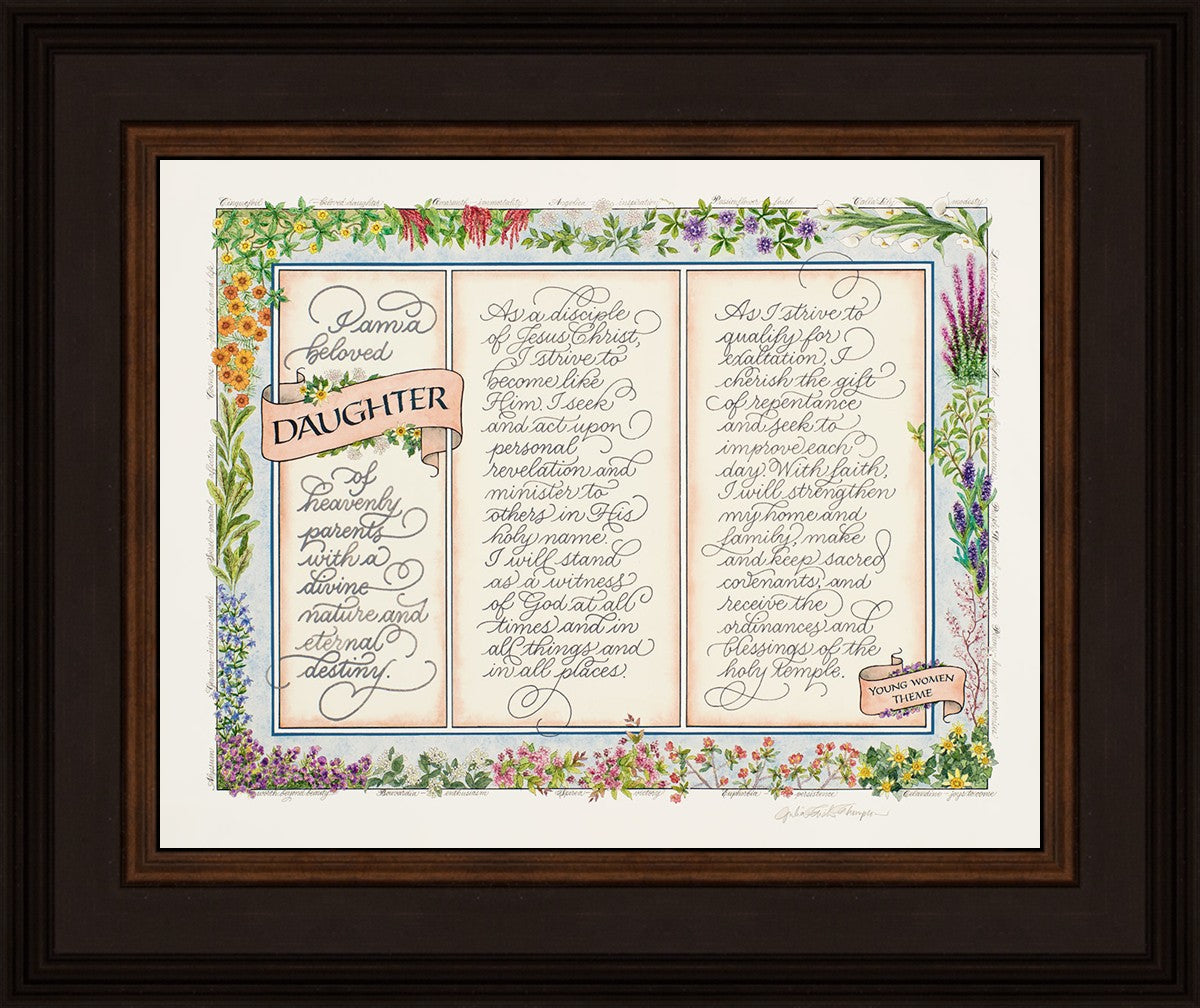 Cinquefoil - beloved daughter Amaranth - immortality Angelica - inspiration Passionflower - faith Calla Lily - modesty
I am a
beloved
DAUGHTER
of
heavenly
parents
with a
divine
nature and
eternal
destiny.
As a disciple
of Jesus Christ,
I strive to
become like
Him. I seek
and act upon
personal
revelation and
minister to
others in His
holy name.
I will stand
as a witness
of God at all
times and in
all things and
in all places.
As I strive to
qualify for
exaltation, I
cherish the gift
of repentance
and seek to
improve each
day. With faith,
I will strengthen
my home and
family, make
and keep sacred
covenants, and
receive the
ordinances and
blessings of the
holy temple.
YOUNG WOMEN
THEME
worth beyond beauty Bouvardia - enthusiasm Spirea - victory Euphorbia - persistence Celandine - joys to come